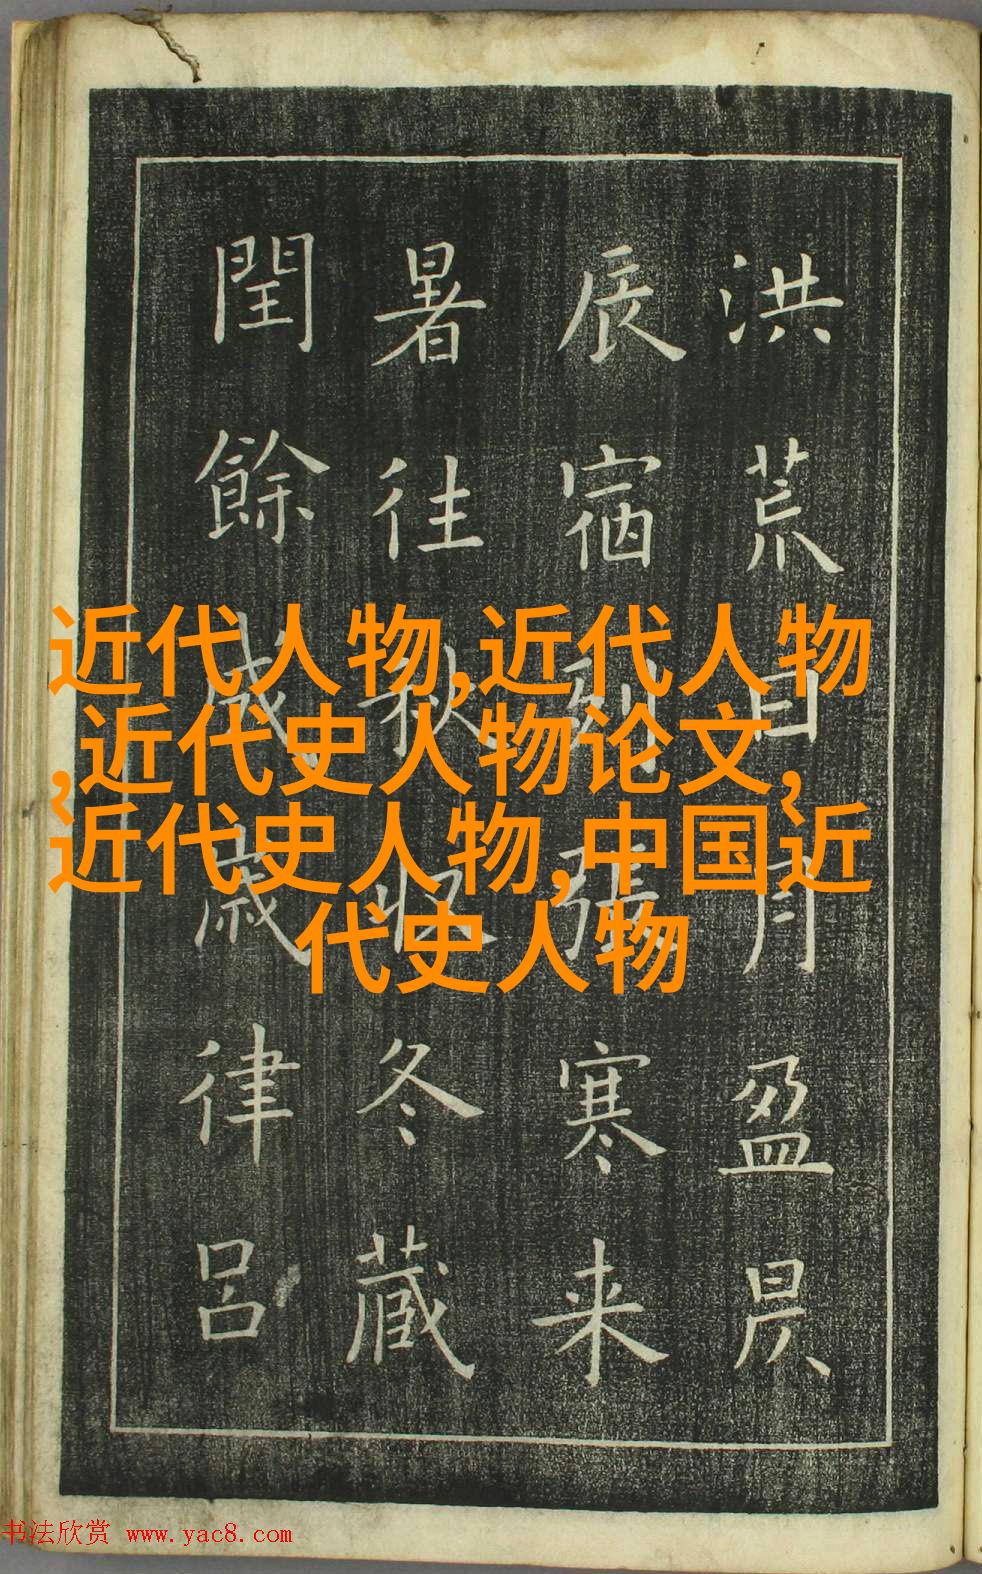 洪荒日月盈昃
辰宿列張寒来
暑往秋收冬藏
閏餘成歲律呂
近代人物,近代人物
,近代史人物论文,
近代史人物,中国近
代史人物
书法欣赏 www.yac8.com